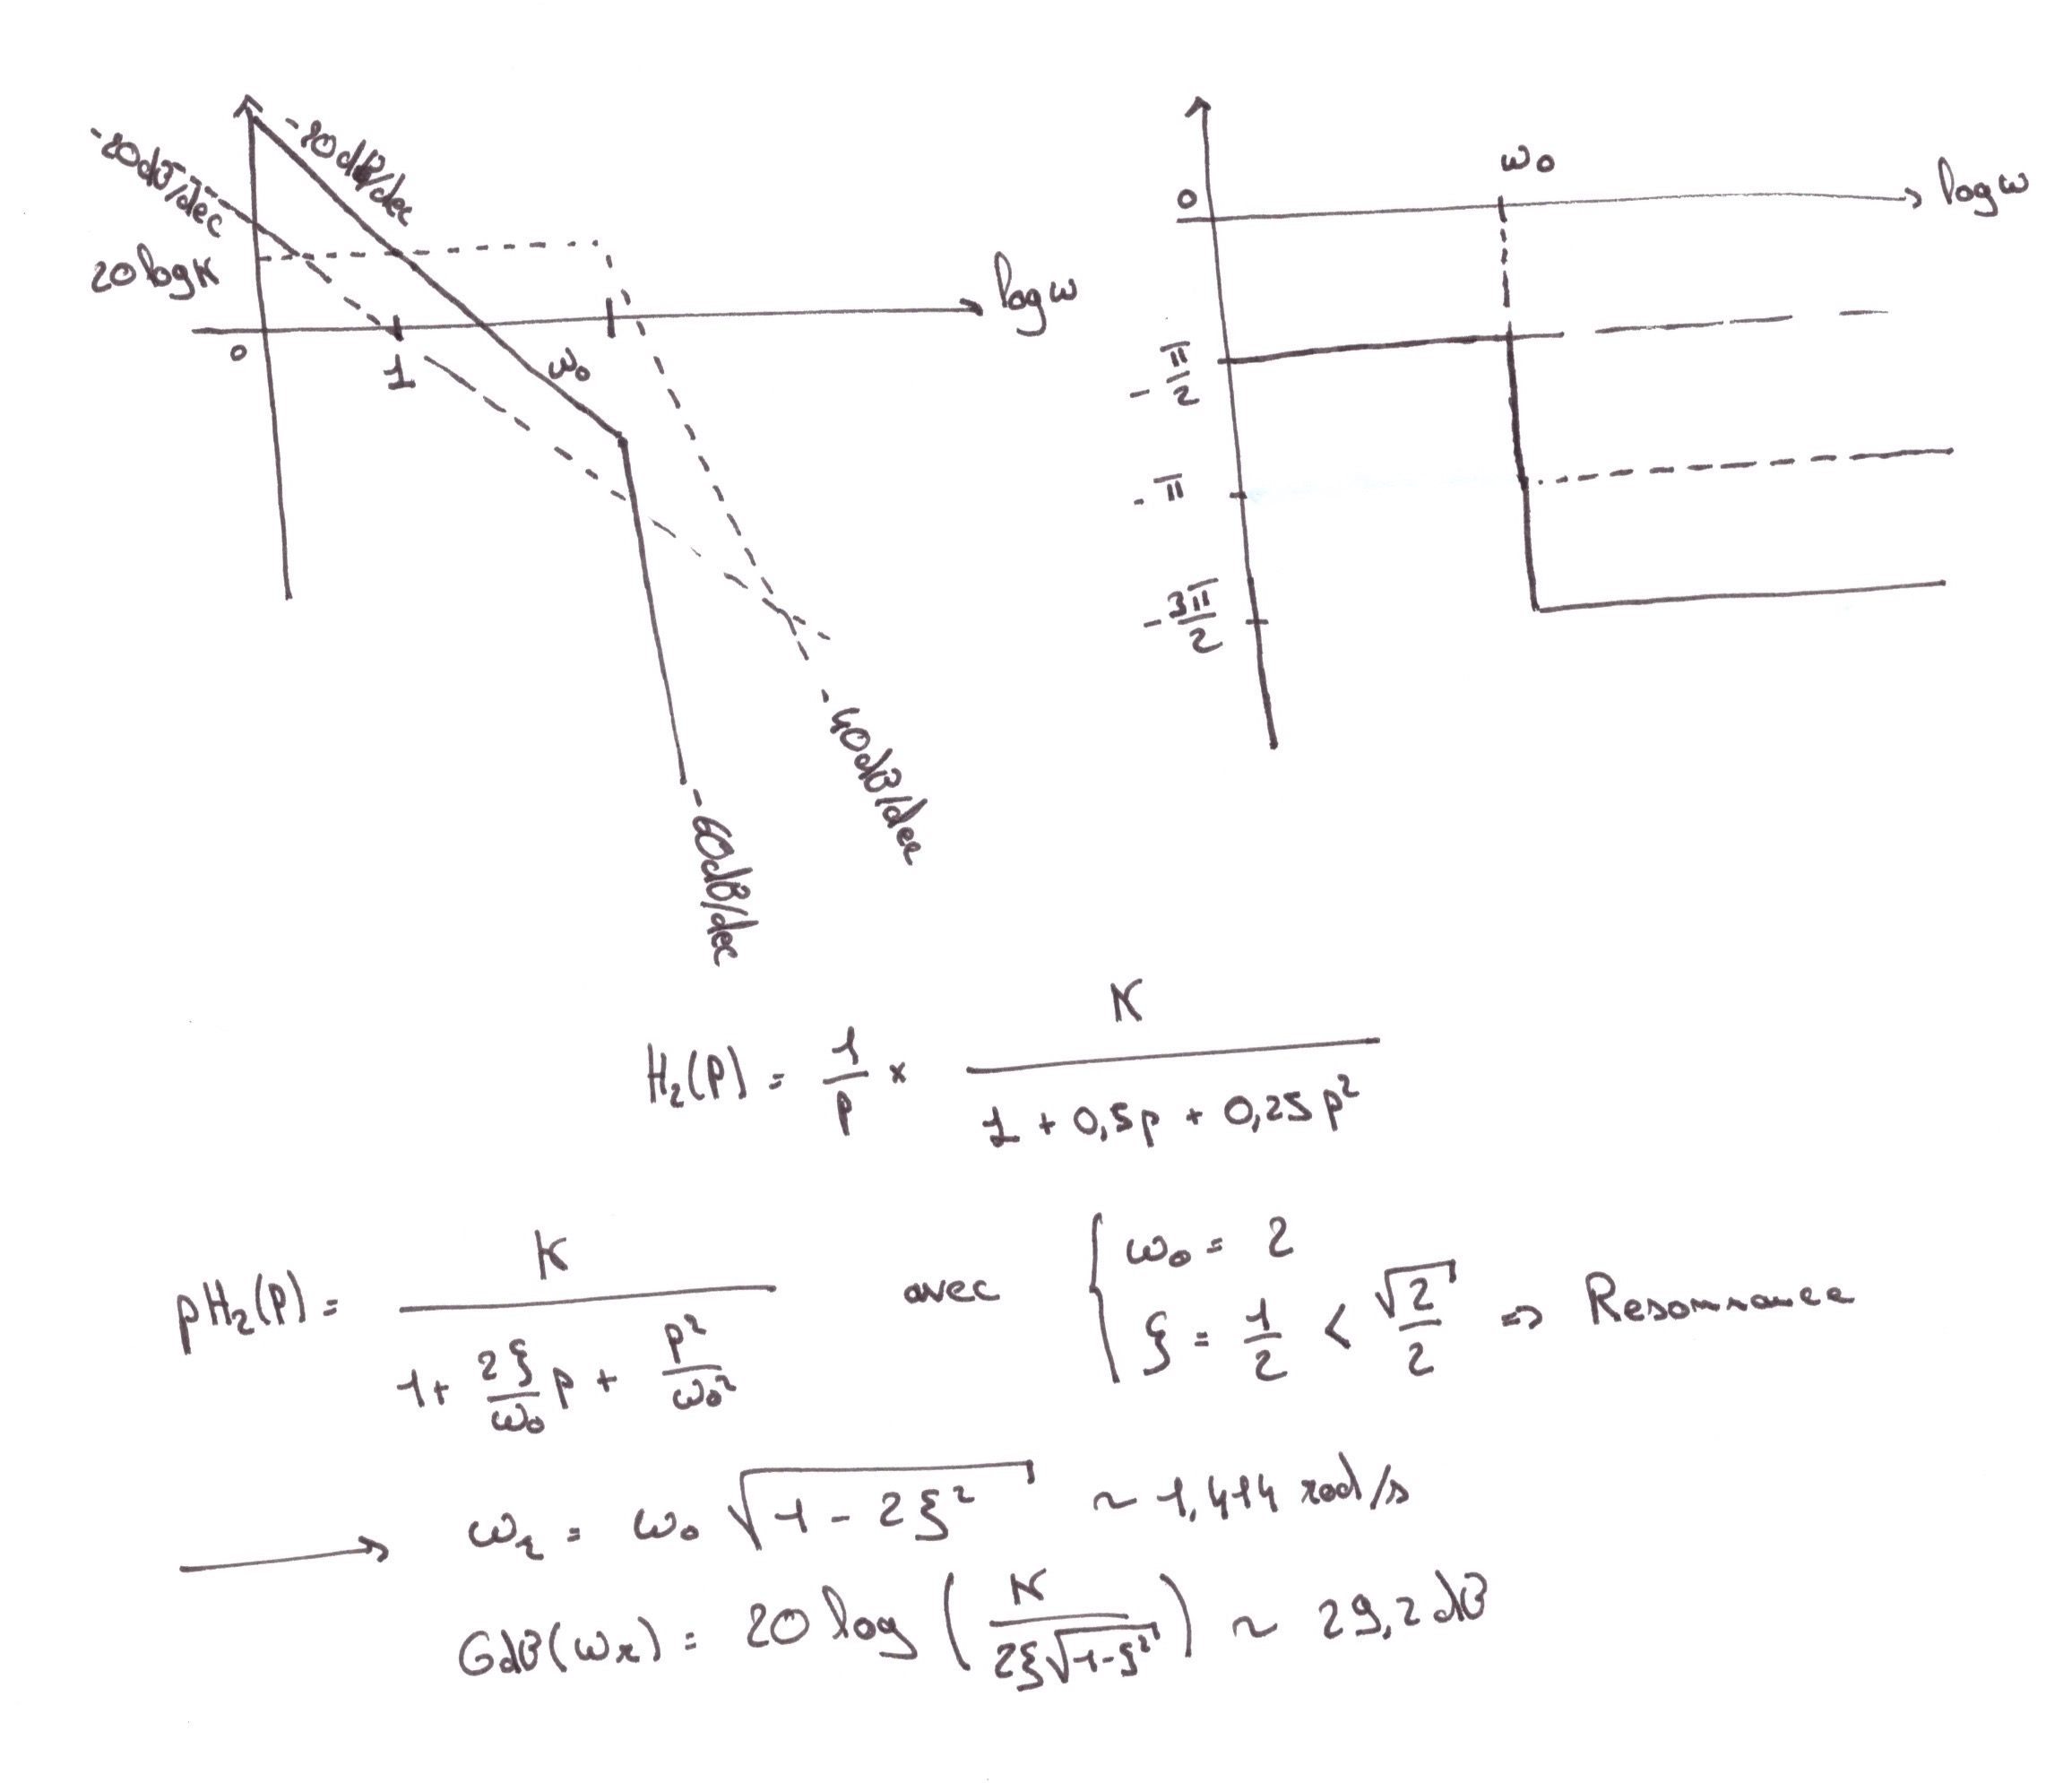 -20dB/dec
-20dB/dec
20 log K
0
1
ω₀
log ω
-40dB/dec
-60dB/dec
ω₀
0
log ω
-π/2
-π
-3π/2
H₂(p) = 1/p × K/(1 + 0,5p + 0,25p²)
pH₂(p) = K/(1 + (2ξ/ω₀)p + p²/ω₀²) avec { ω₀ = 2
ξ = 1/2 < √2/2 => Resonnance
→ ωr = ω₀ √(1 - 2ξ²) ~ 1,414 rad/s
GdB(ωr) = 20 log (K/(2ξ√(1-ξ²))) ~ 29,2 dB